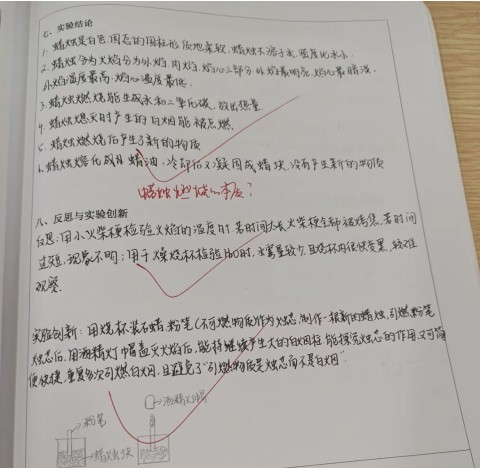 七、实验结论
1. 蜡烛是白色、固态的圆柱形 质地柔软、蜡烛不溶于水、密度比水小
2. 蜡烛分为火焰分为外焰、内焰、焰心三部分 外焰最明亮、焰心最暗淡、
外焰温度最高、焰心温度最低.
3. 蜡烛燃烧能生成水和二氧化碳、放出热量
4. 蜡烛熄灭时产生的白烟能被点燃.
5. 蜡烛燃烧后产生了新的物质
6. 蜡烛熔化成蜡油,冷却后又凝固成蜡块,没有产生新的物质
蜡烛燃烧的本质?
八、反思与实验创新
反思:用小火柴梗检验火焰的温度时 若时间太长火柴梗全部被烤焦,若时间
过短,现象不明;用干燥烧杯检验H₂O时,水雾量较少,且烧杯内很快变黑,较难
观察.
实验创新:用烧杯装石蜡,粉笔(不可燃物质)作为烛芯,制作一根新的蜡烛,引燃粉笔
烛芯后,用酒精灯帽盖灭火焰后,能持继续产生大的白烟柱,能探究烛芯的作用,又可简
便快捷,重复多次引燃白烟,且避免了"引燃物质是烛芯而不是白烟"
酒精灯帽
粉笔
蜡烛块